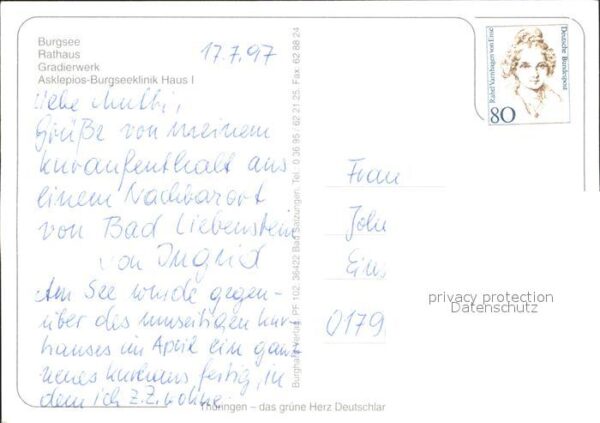 Burgsee
Rathaus
Gradierwerk
Asklepios-Burgseeklinik Haus I
17.7.97
Liebe Mutti,
Grüße von meinem
Kuraufenthalt aus
einem Nachbarort
von Bad Liebenstein
von Ingrid
Am See wurde gegen-
über des umseitigen Kur-
hauses im April ein ganz
neues Kurhaus fertig, in
dem ich z.Z. wohne.
Thüringen – das grüne Herz Deutschlan
Burghard Verlag, PF 102, 36422 Bad Salzungen, Tel. 0 36 95 / 62 21 25, Fax 62 88 24
Rahel Varnhagen von Ense
Deutsche Bundespost
80
Frau
0179
privacy protection
Datenschutz